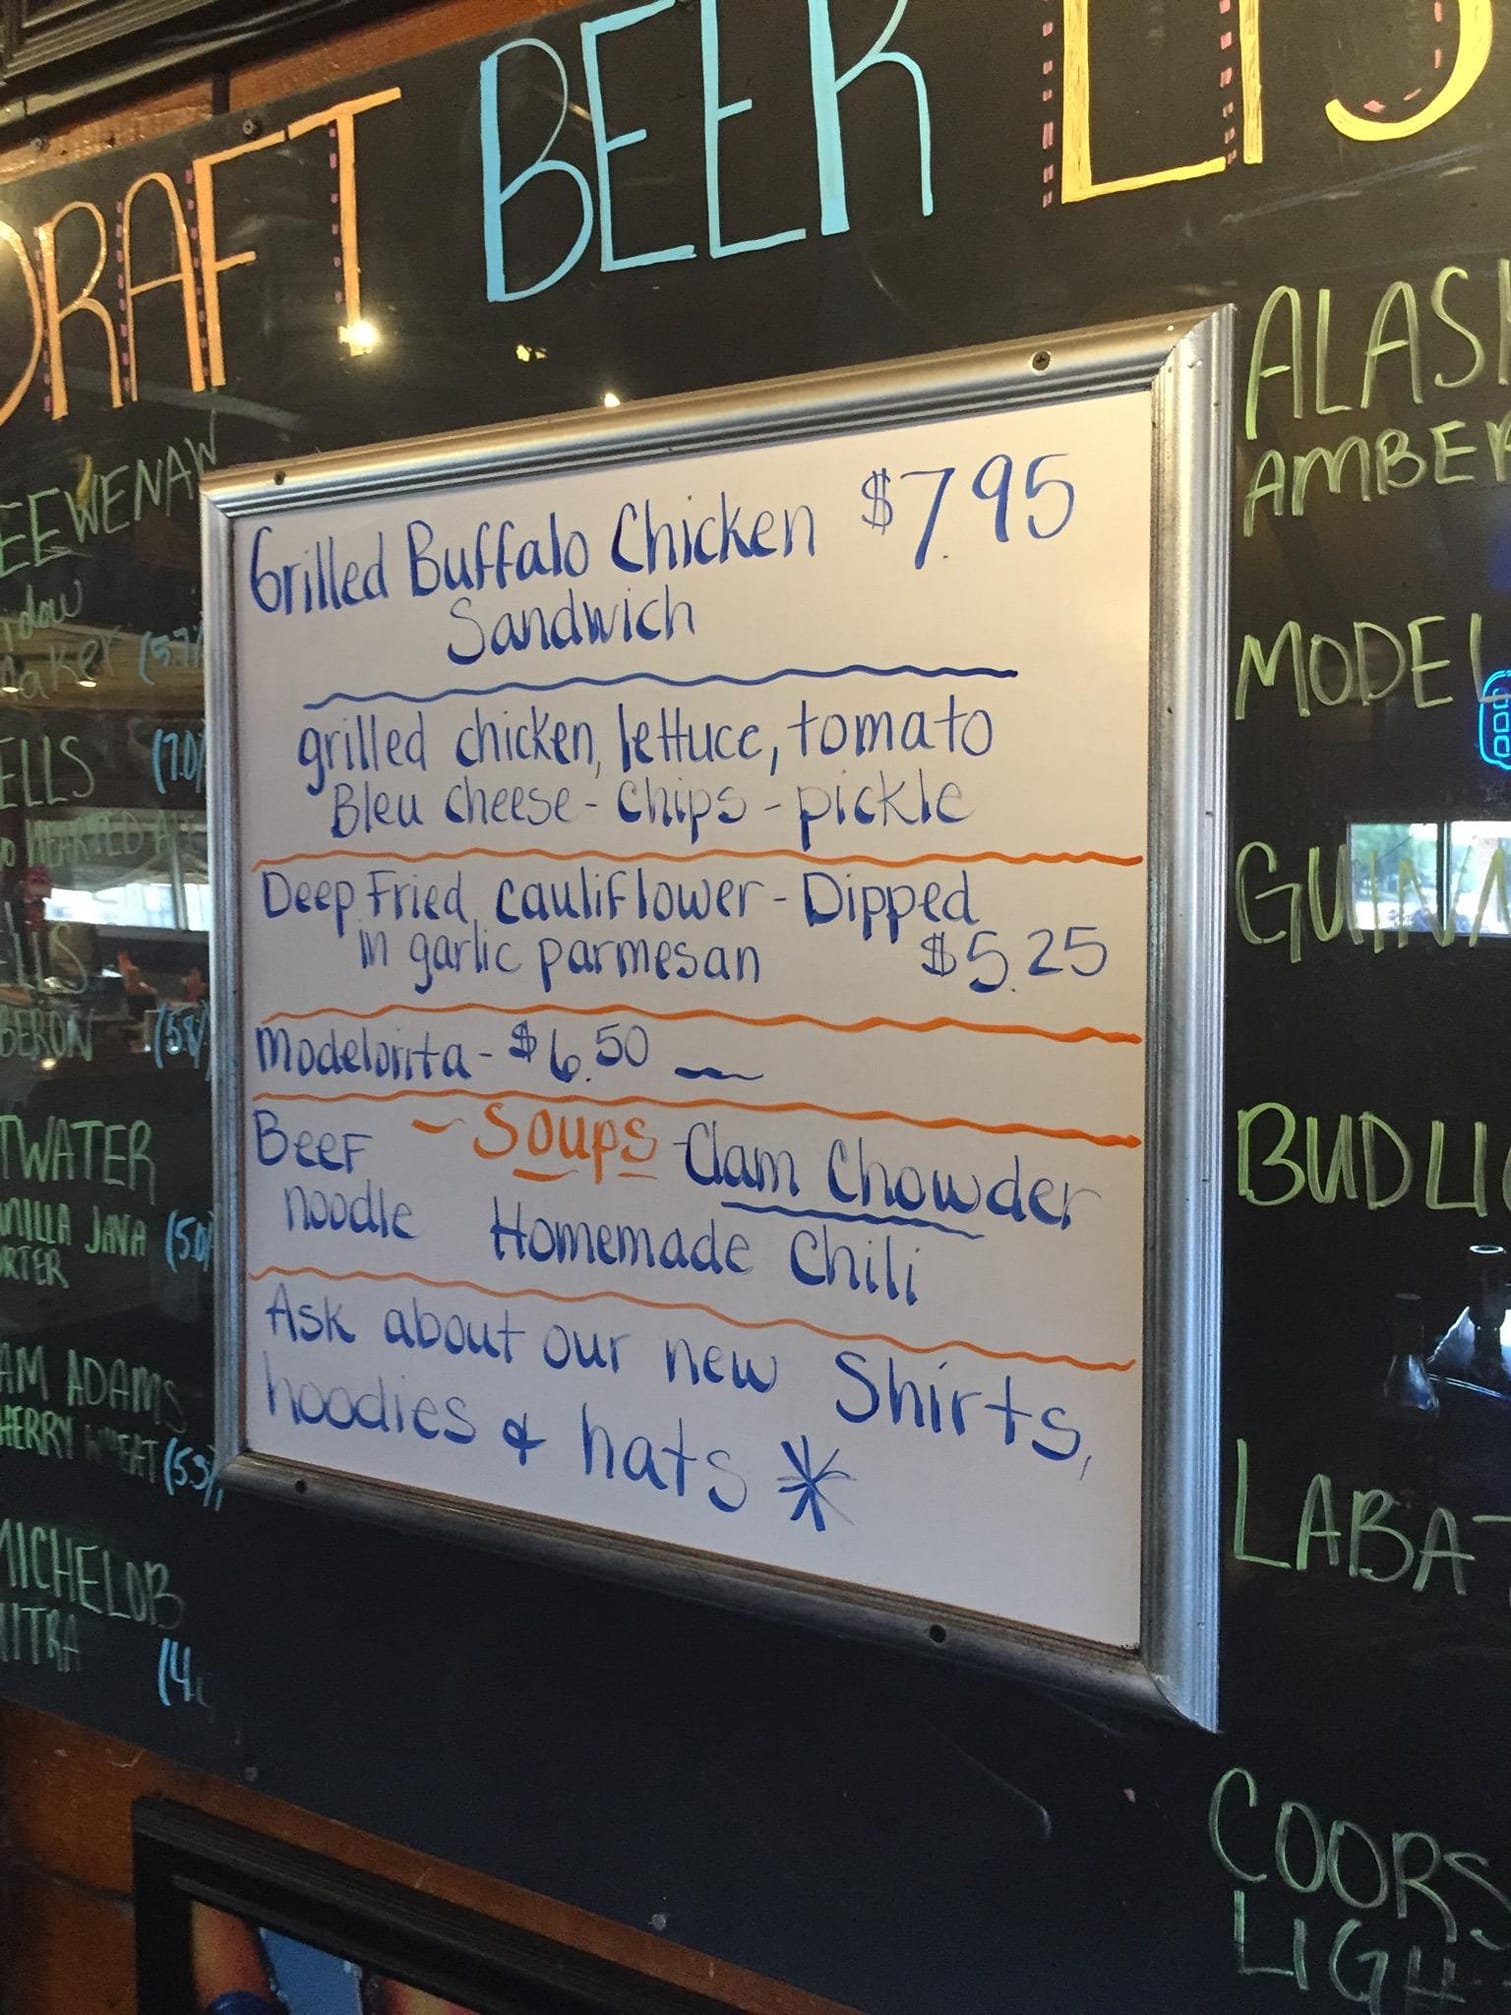 DRAFT BEER LIS
Grilled Buffalo Chicken $7.95
Sandwich
grilled chicken, lettuce, tomato
Bleu cheese - Chips - pickle
Deep Fried cauliflower - Dipped
in garlic parmesan $5.25
Modelorita - $6.50
~ Soups - Clam Chowder
Beef
noodle Homemade Chili
Ask about our new Shirts,
hoodies & hats *
EEWENAW
idow
aker (5.7%
ELLS (7.0%
O HEARTED A
BERON (5.8%
TWATER
ANILLA JAVA (5.0%
RTER
AM ADAMS
HERRY WHEAT (5.3%
MICHELOB
(4.
ALASK
AMBER
MODEL
GUINN
BUD LI
LABAT
COORS
LIGH